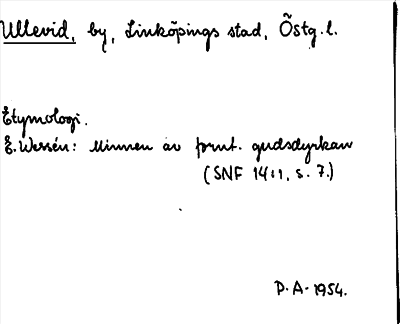 Ullevid, by, Linköpings stad, Östg. l.
Etymologi.
E. Wessén: Minnen av fornt. gudsdyrkan
(SNF 14:1, s. 7.)
P. A. 1954.